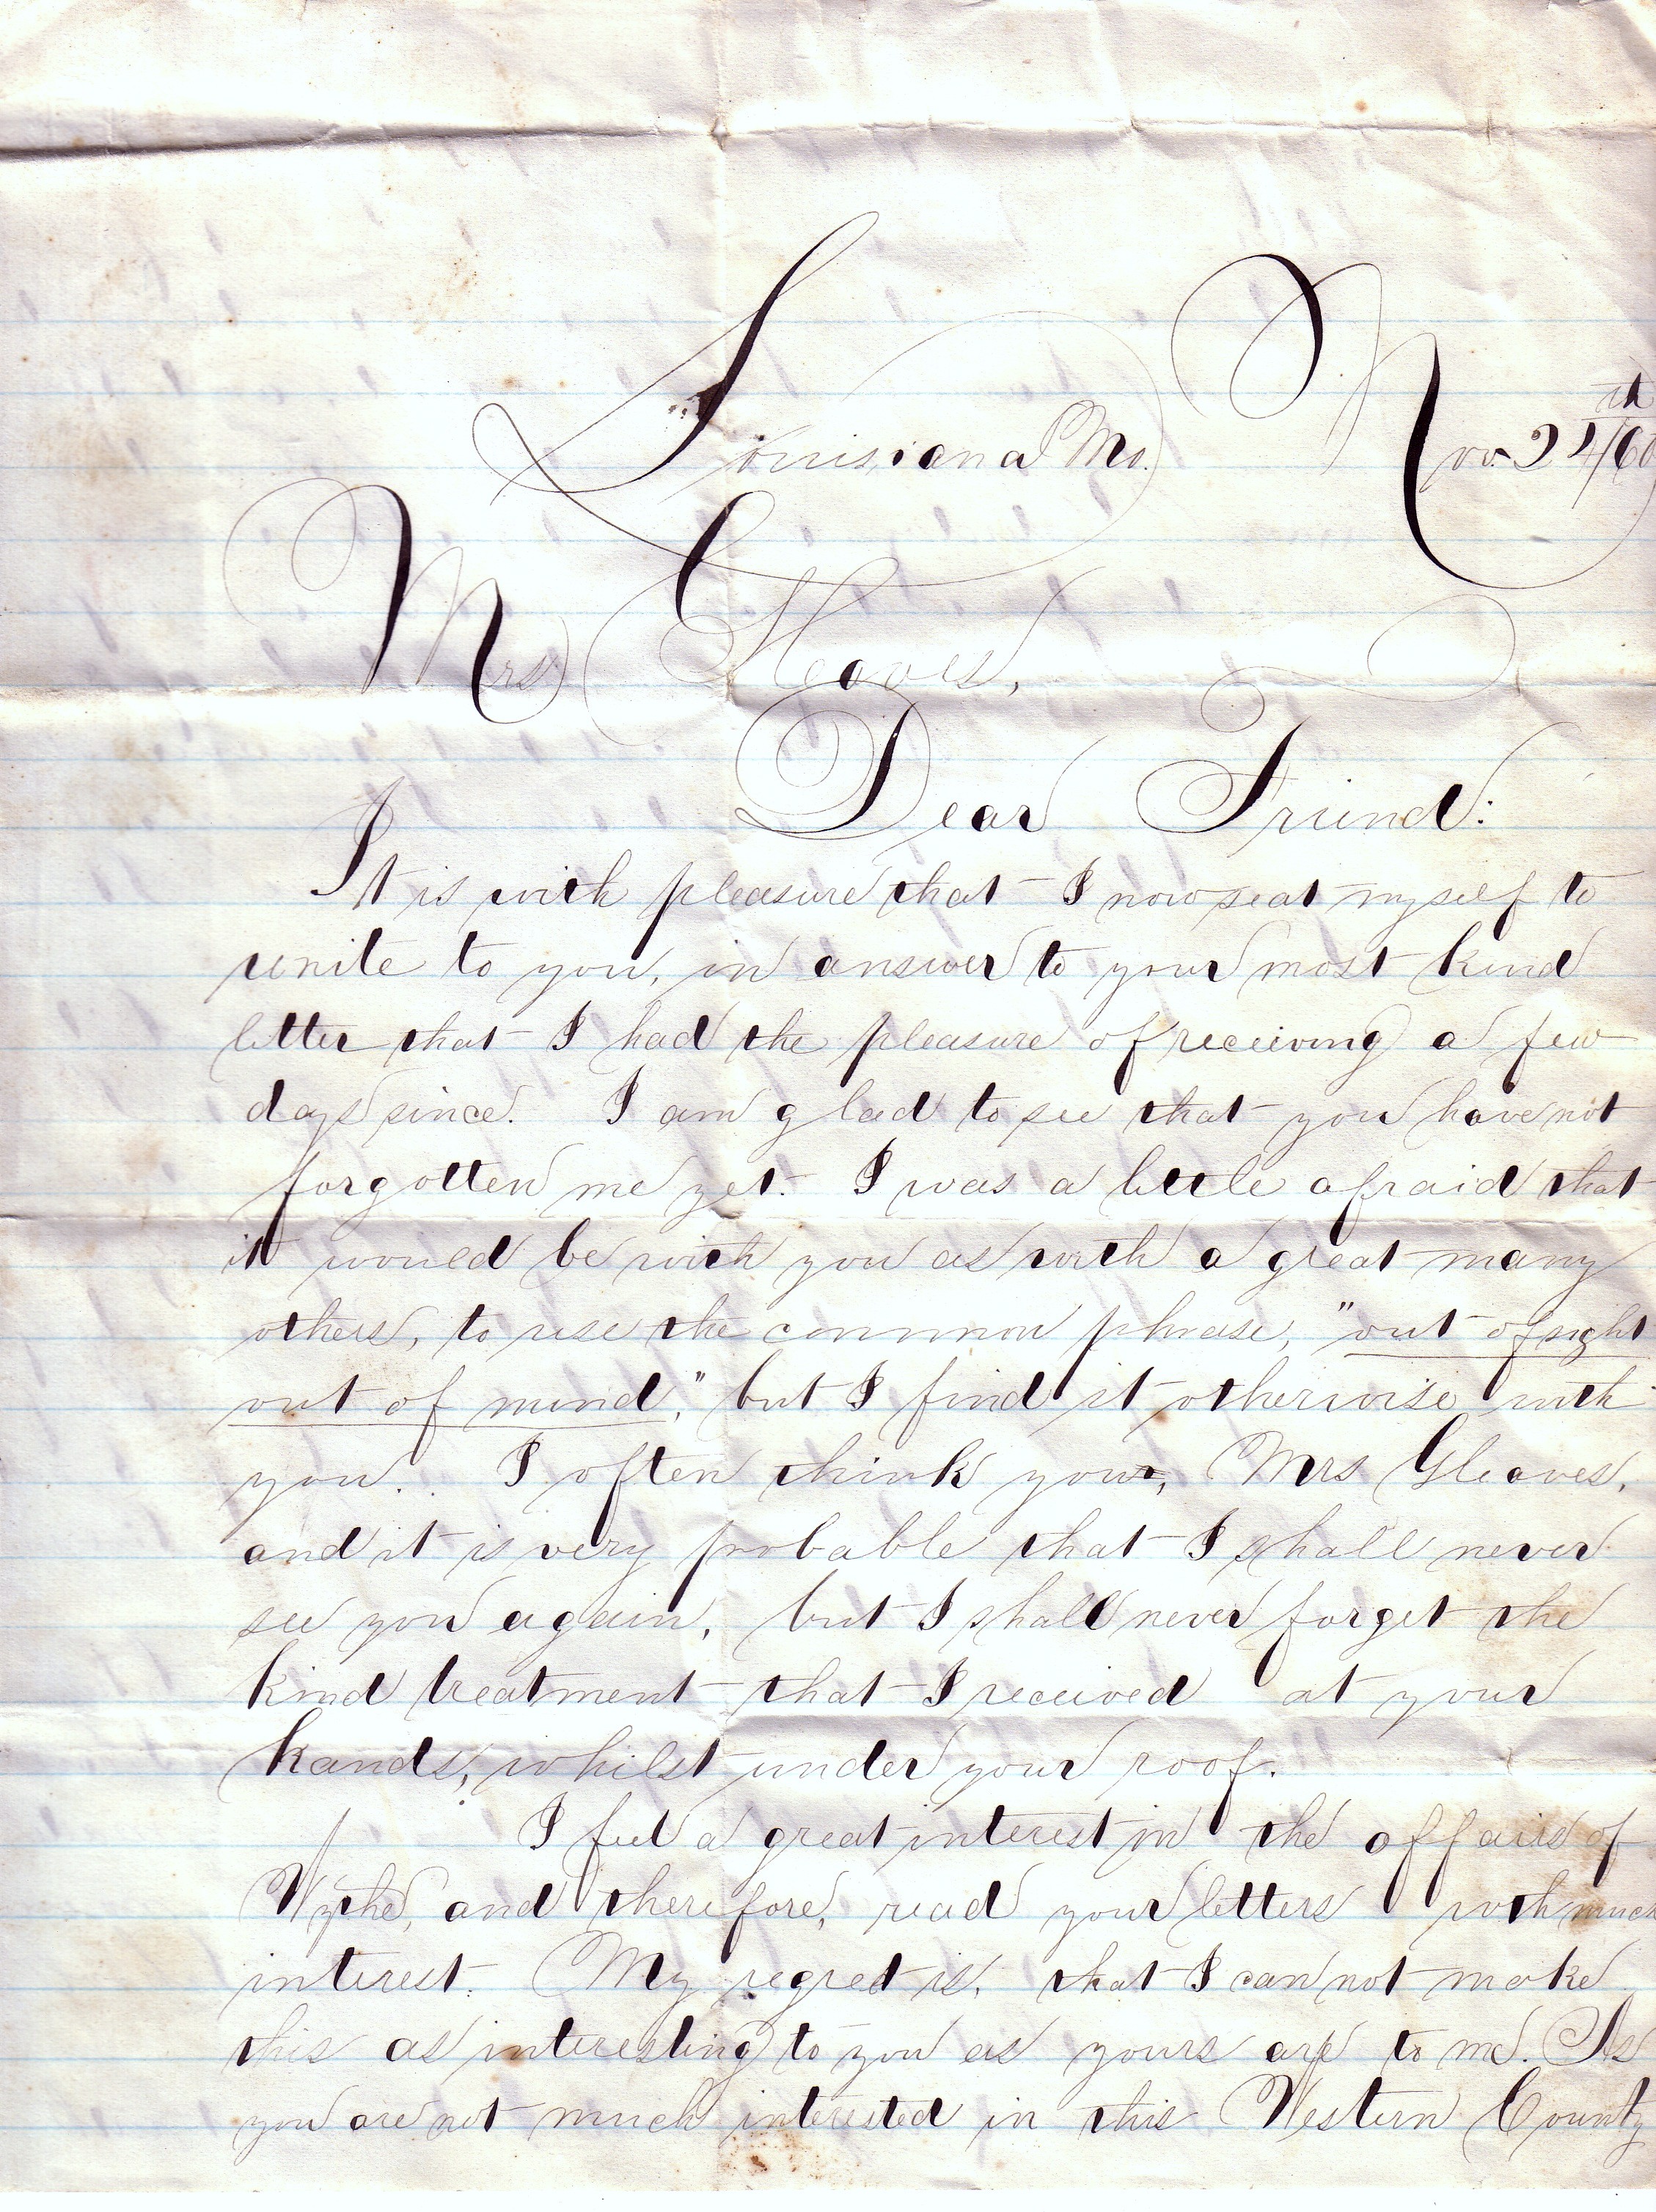 Louisiana Mo. Nov. 24th/60
Mrs Gleaves,
Dear Friend:
It is with pleasure that I now seat myself to
write to you, in answer to your most kind
letter that I had the pleasure of receiving a few
days since. I am glad to see that you have not
forgotten me yet. I was a little afraid that
it would be with you as with a great many
others, to use the common phrase, "out of sight
out of mind," but I find it otherwise with
you. I often think you, Mrs Gleaves,
and it is very probable that I shall never
see you again, but I shall never forget the
kind treatment that I received at your
hands, whilst under your roof.
I feel a great interest in the affairs of
Wythe, and therefore, read your letters with much
interest. My regret is, that I can not make
this as interesting to you as yours are to me. As
you are not much interested in this Western County